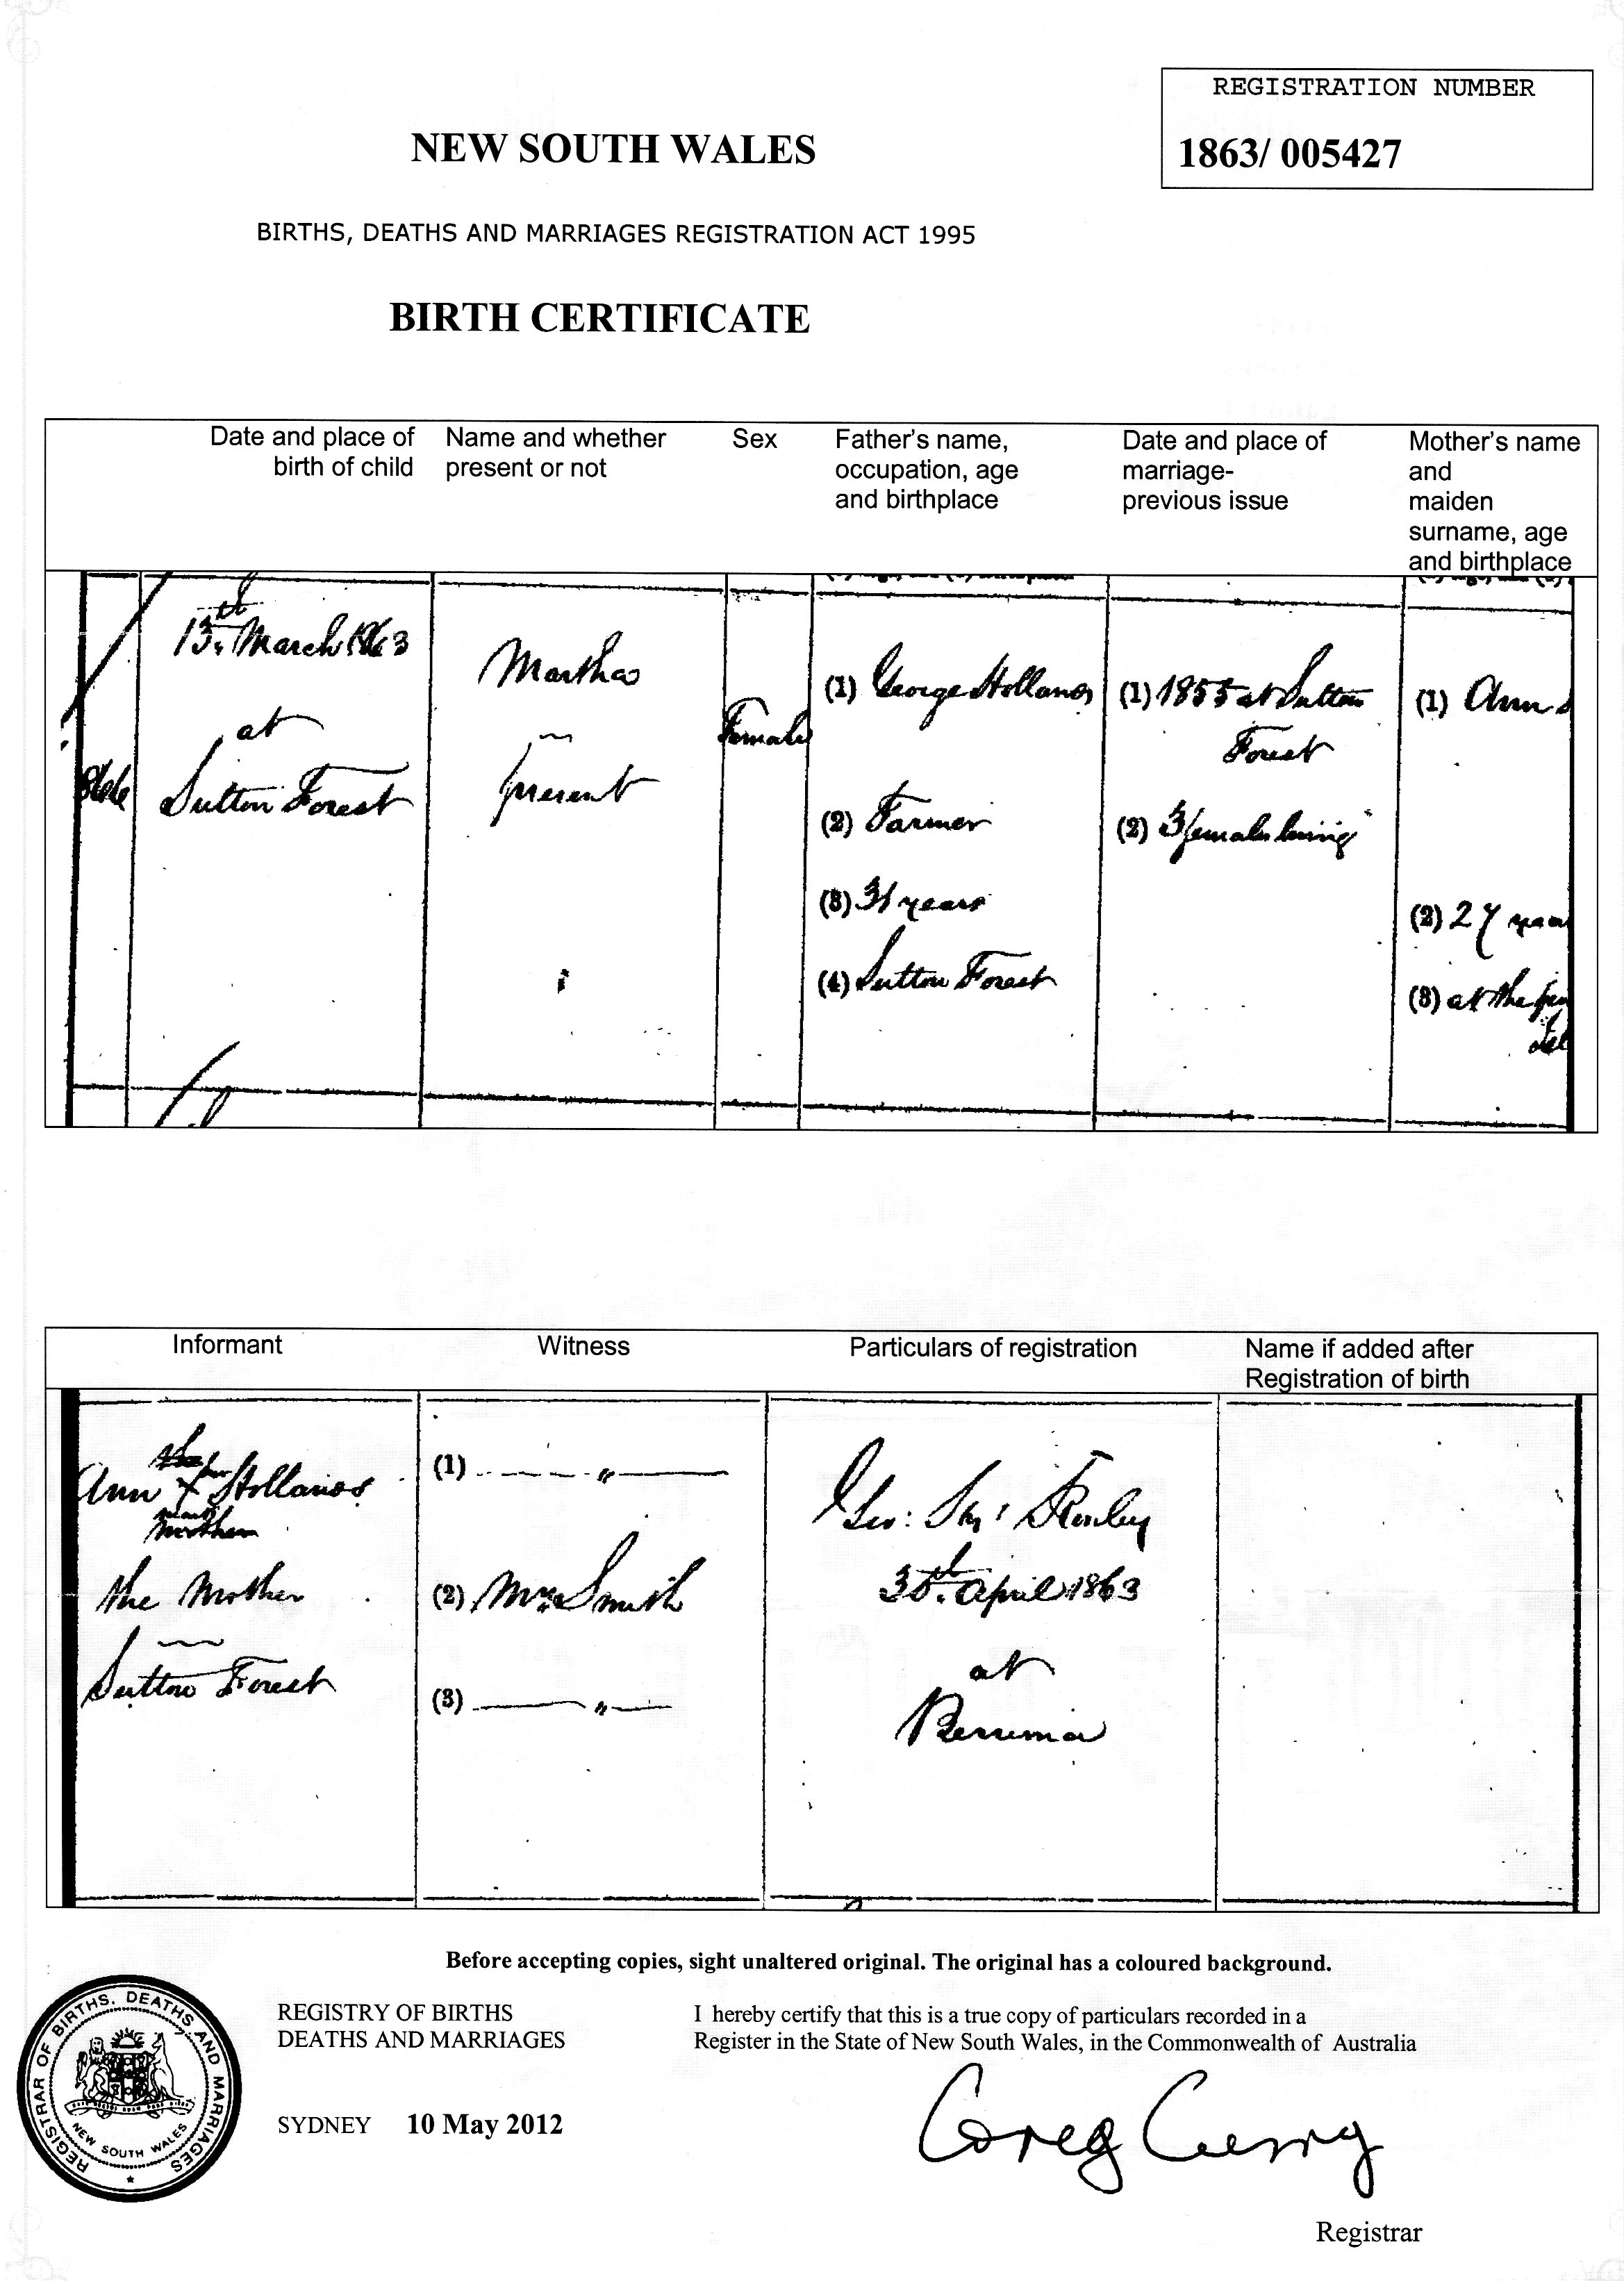 REGISTRATION NUMBER
1863/ 005427
NEW SOUTH WALES
BIRTHS, DEATHS AND MARRIAGES REGISTRATION ACT 1995
BIRTH CERTIFICATE
Date and place of birth of child
Name and whether present or not
Sex
Father's name, occupation, age and birthplace
Date and place of marriage- previous issue
Mother's name and maiden surname, age and birthplace
13th March 1863
at
Sutton Forest
Martha
present
Female
(1) George Hollands
(2) Farmer
(3) 31 years
(4) Sutton Forest
(1) 1855 at Sutton
Forest
(2) 3 females living
(1) Ann
(2) 27
(3) at the
Informant
Witness
Particulars of registration
Name if added after Registration of birth
Ann X Hollands
her
mark
the Mother
Sutton Forest
(1) "
(2) Mrs Smith
(3) "
Geo:
30th April 1863
at
Berrima
Before accepting copies, sight unaltered original. The original has a coloured background.
REGISTRAR OF BIRTHS, DEATHS AND MARRIAGES
NEW SOUTH WALES
REGISTRY OF BIRTHS
DEATHS AND MARRIAGES
SYDNEY 10 May 2012
I hereby certify that this is a true copy of particulars recorded in a
Register in the State of New South Wales, in the Commonwealth of Australia
Greg Curry
Registrar